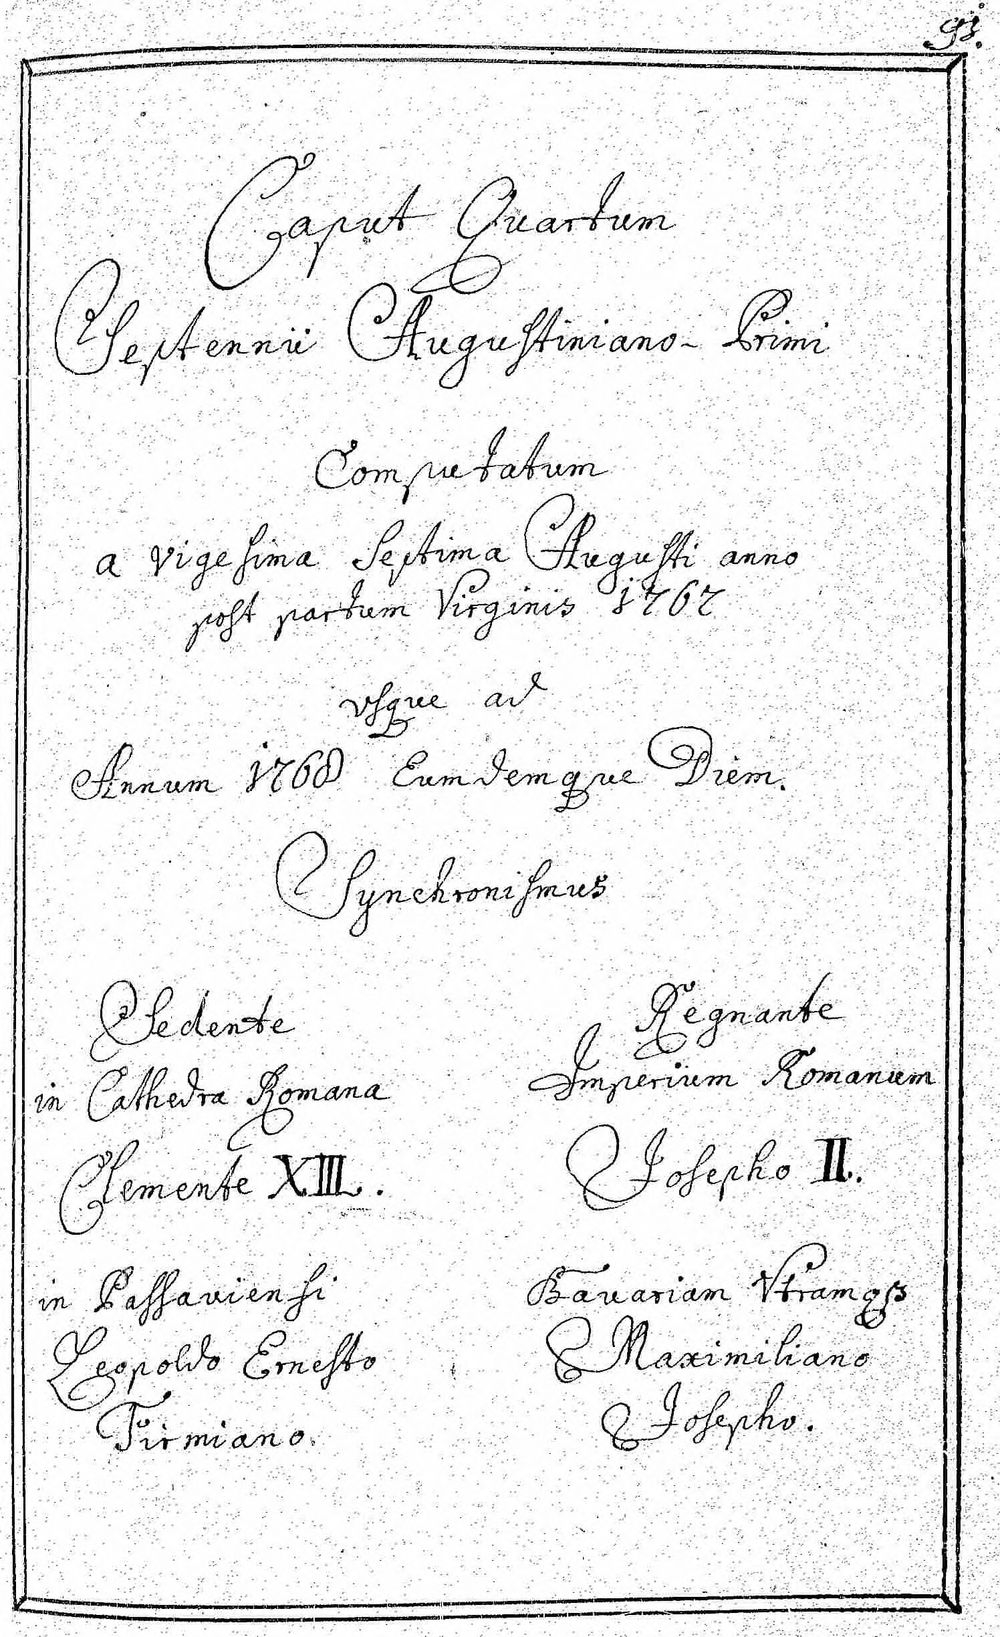 91.
Caput Quartum
Septennii Augustiniano- Primi
Computatum
a vigesima Septima Augusti anno
post partum Virginis 1767
usque ad
Annum 1768 Eumdemque Diem.
Synchronismus
Sedente
in Cathedra Romana
Clemente XIII.
in Passaviensi
Leopoldo Ernesto
Firmiano.
Regnante
Imperium Romanum
Josepho II.
Bavariam Vtramqꝫ
Maximiliano
Josepho.